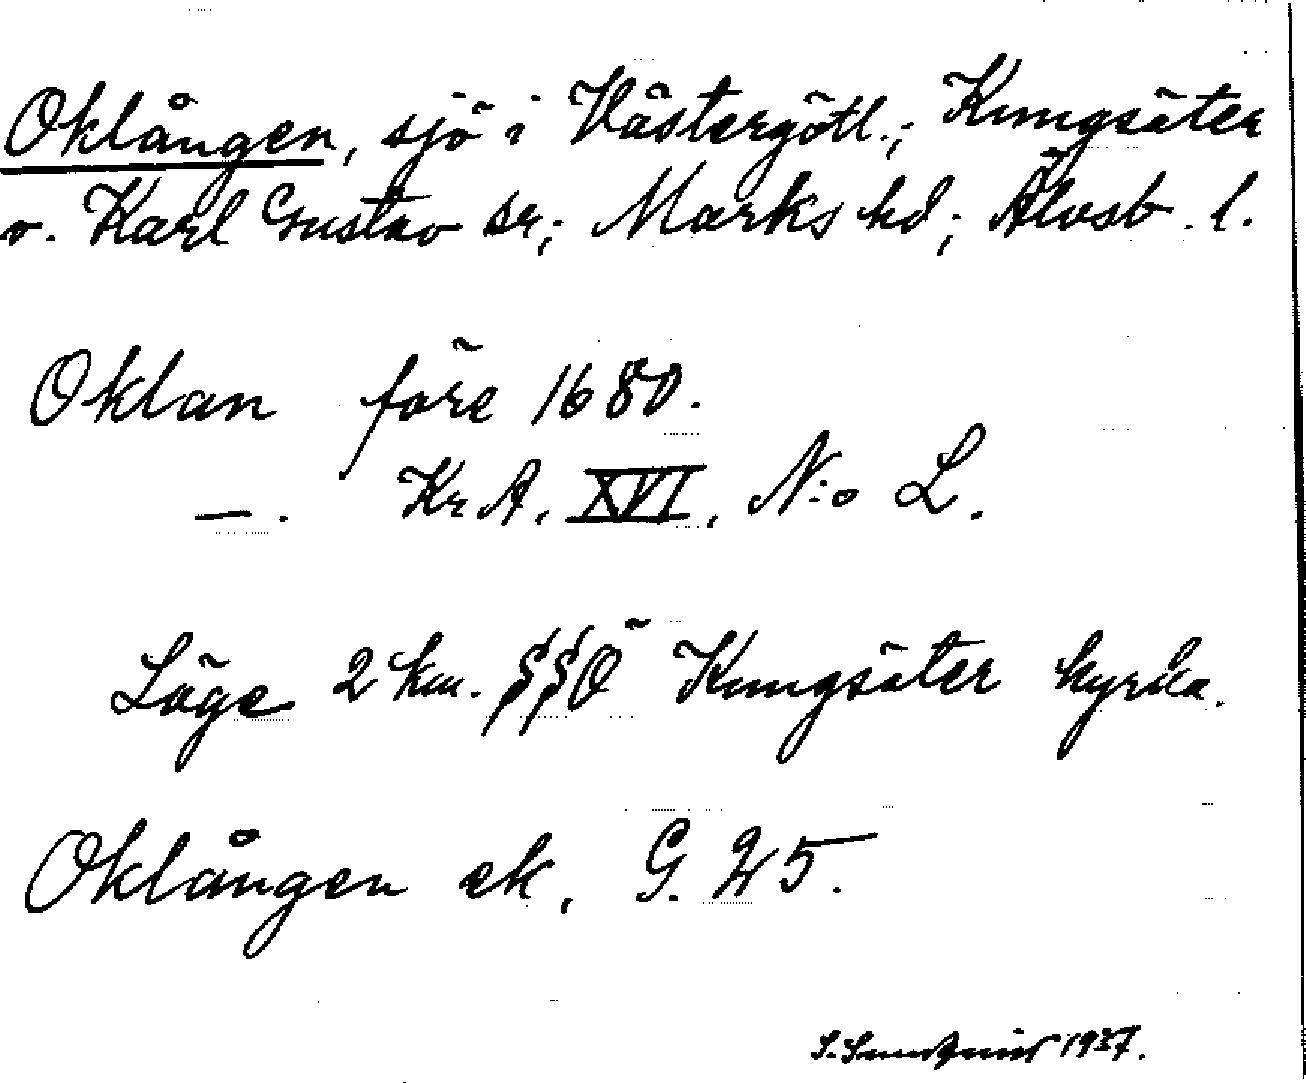 Oklången, sjö i Västergötl.; Kungsäter
o. Karl Gustav sr; Marks hd; Älvsb. l.
Oklan före 1680.
—. KrA, XVI, N:o L.
Läge 2 km. SSÖ Kungsäter kyrka.
Oklången ek, G. 25.
1937.